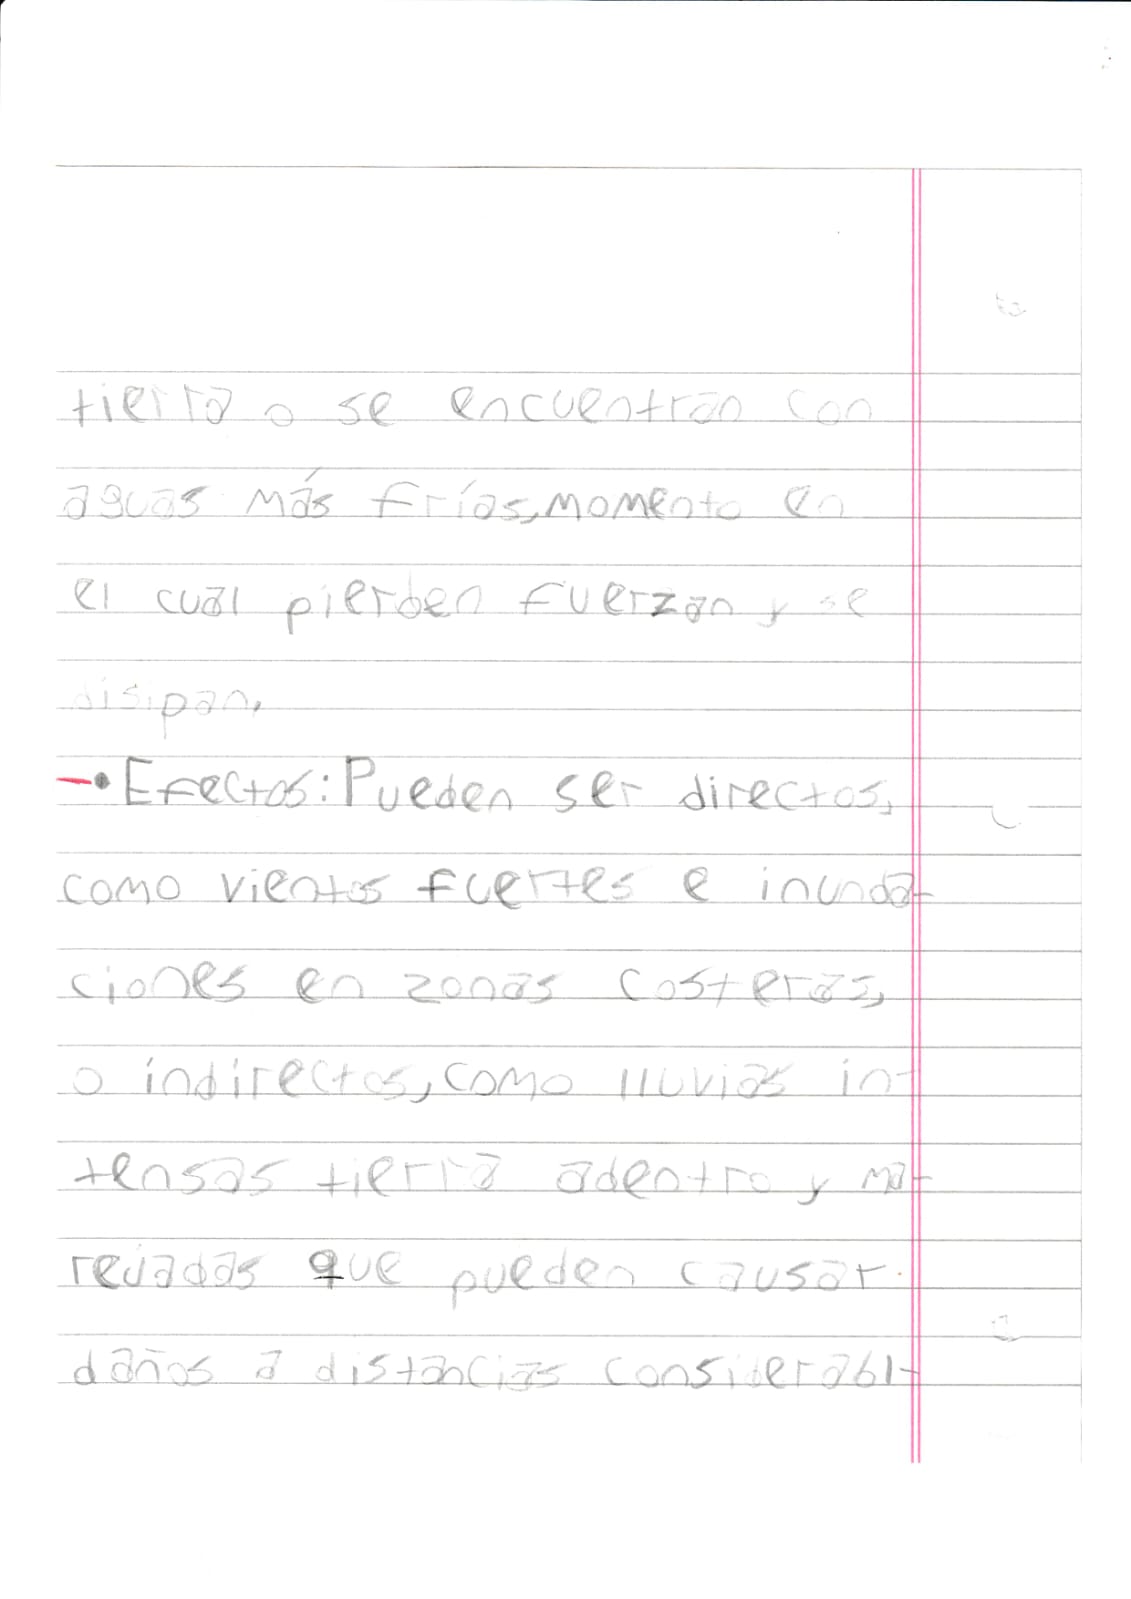 tierra o se encuentran con
aguas más frías, momento en
el cual pierden fuerzan y se
disipan.
-• Efectos: Pueden ser directos,
como vientos fuertes e inunda-
ciones en zonas costeras,
o indirectos, como lluvias in-
tensas tierra adentro y ma-
rejadas que pueden causar
daños a distancias considerabl-